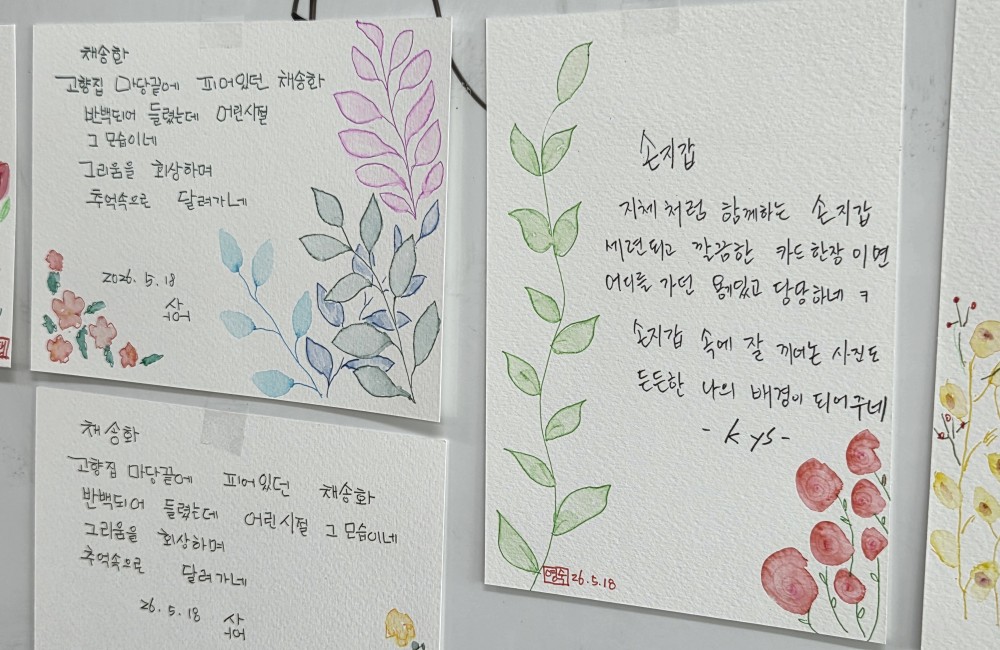 채송화
고향집 마당끝에 피어있던 채송화
반백되어 들렸는데 어린시절
그 모습이네
그리움을 회상하며
추억속으로 달려가네
2026. 5. 18
채송화
고향집 마당끝에 피어있던 채송화
반백되어 들렸는데 어린시절 그 모습이네
그리움을 회상하며
추억속으로 달려가네
26. 5. 18
손지갑
지체처럼 함께하는 손지갑
세련되고 깔끔한 카드한장이면
어디를 가던 용있고 당당하네 ㅋ
손지갑 속에 잘 끼어논 사진도
든든한 나의 배경이 되어주네
- Kys -
영숙 26.5.18